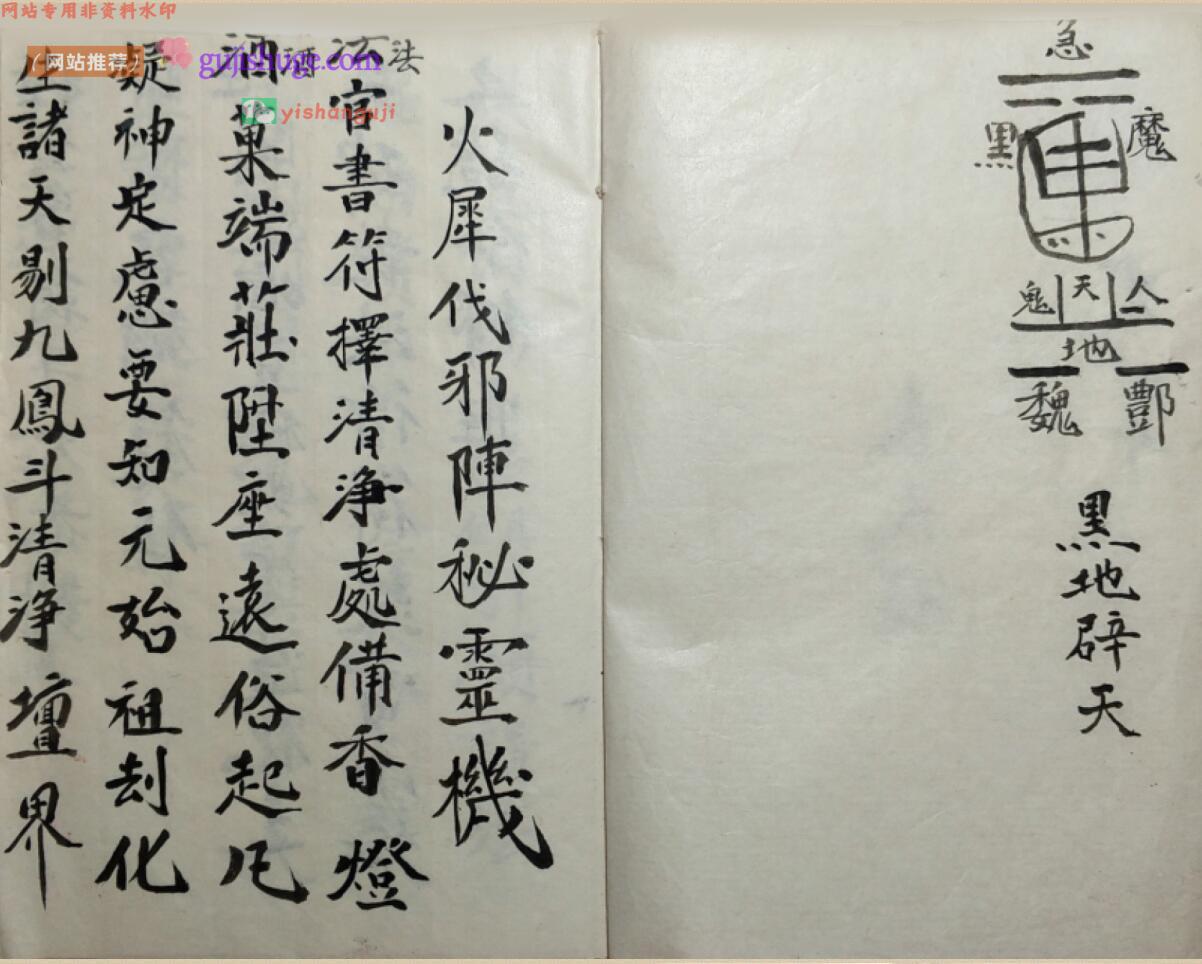 网站专用非资料水印
急
黑 魔
鬼 天 人
地
魏 酆
黑地辟天
火犀伐邪陣秘靈機
法
官書符擇清淨處備香燈
酒菓端莊陞座遠俗起凡
酒
疑神定慮要知元始祖刦化
生諸天剔九鳳斗清淨壇界
(网站推荐) gujishuge.com
yishanguji